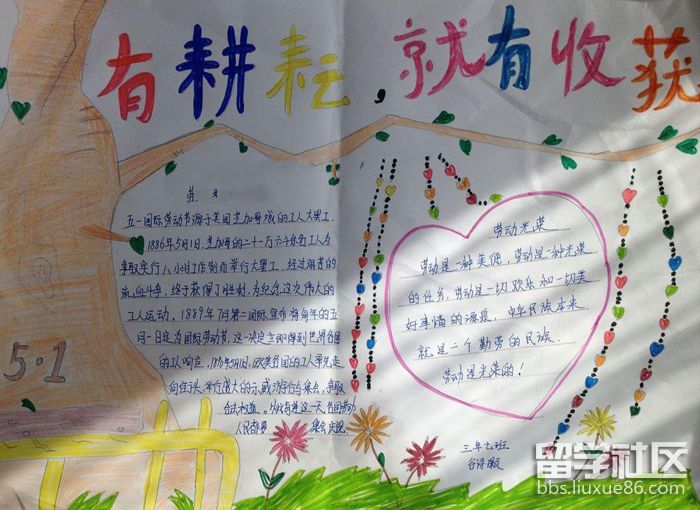 有耕耘,就有收获
五一国际劳动节源于美国芝加哥城的工人大罢工.
1886年5月1日,芝加哥的二十一万六千余名工人为
争取实行八小时工作制而举行大罢工,经过艰苦的
流血斗争,终于获得了胜利,为纪念这次伟大的
工人运动,1889年7月第二国际宣布将每年的五
月一日定为国际劳动节,这一决定立即得到世界各国
的工人响应,1890年5月1日,欧美各国的工人率先走
向街头,举行盛大的示威游行与集会,争取
合法权益.从此每逢这一天,各国劳动
人民都要 集会庆祝
5·1
劳动光荣
劳动是一种美德,劳动是一种光荣
的任务,劳动是一切欢乐和一切美
好事情的源泉,中华民族本来
就是一个勤劳的民族.
劳动是光荣的!
三年七班
留学社区
bbs.liuxue86.com